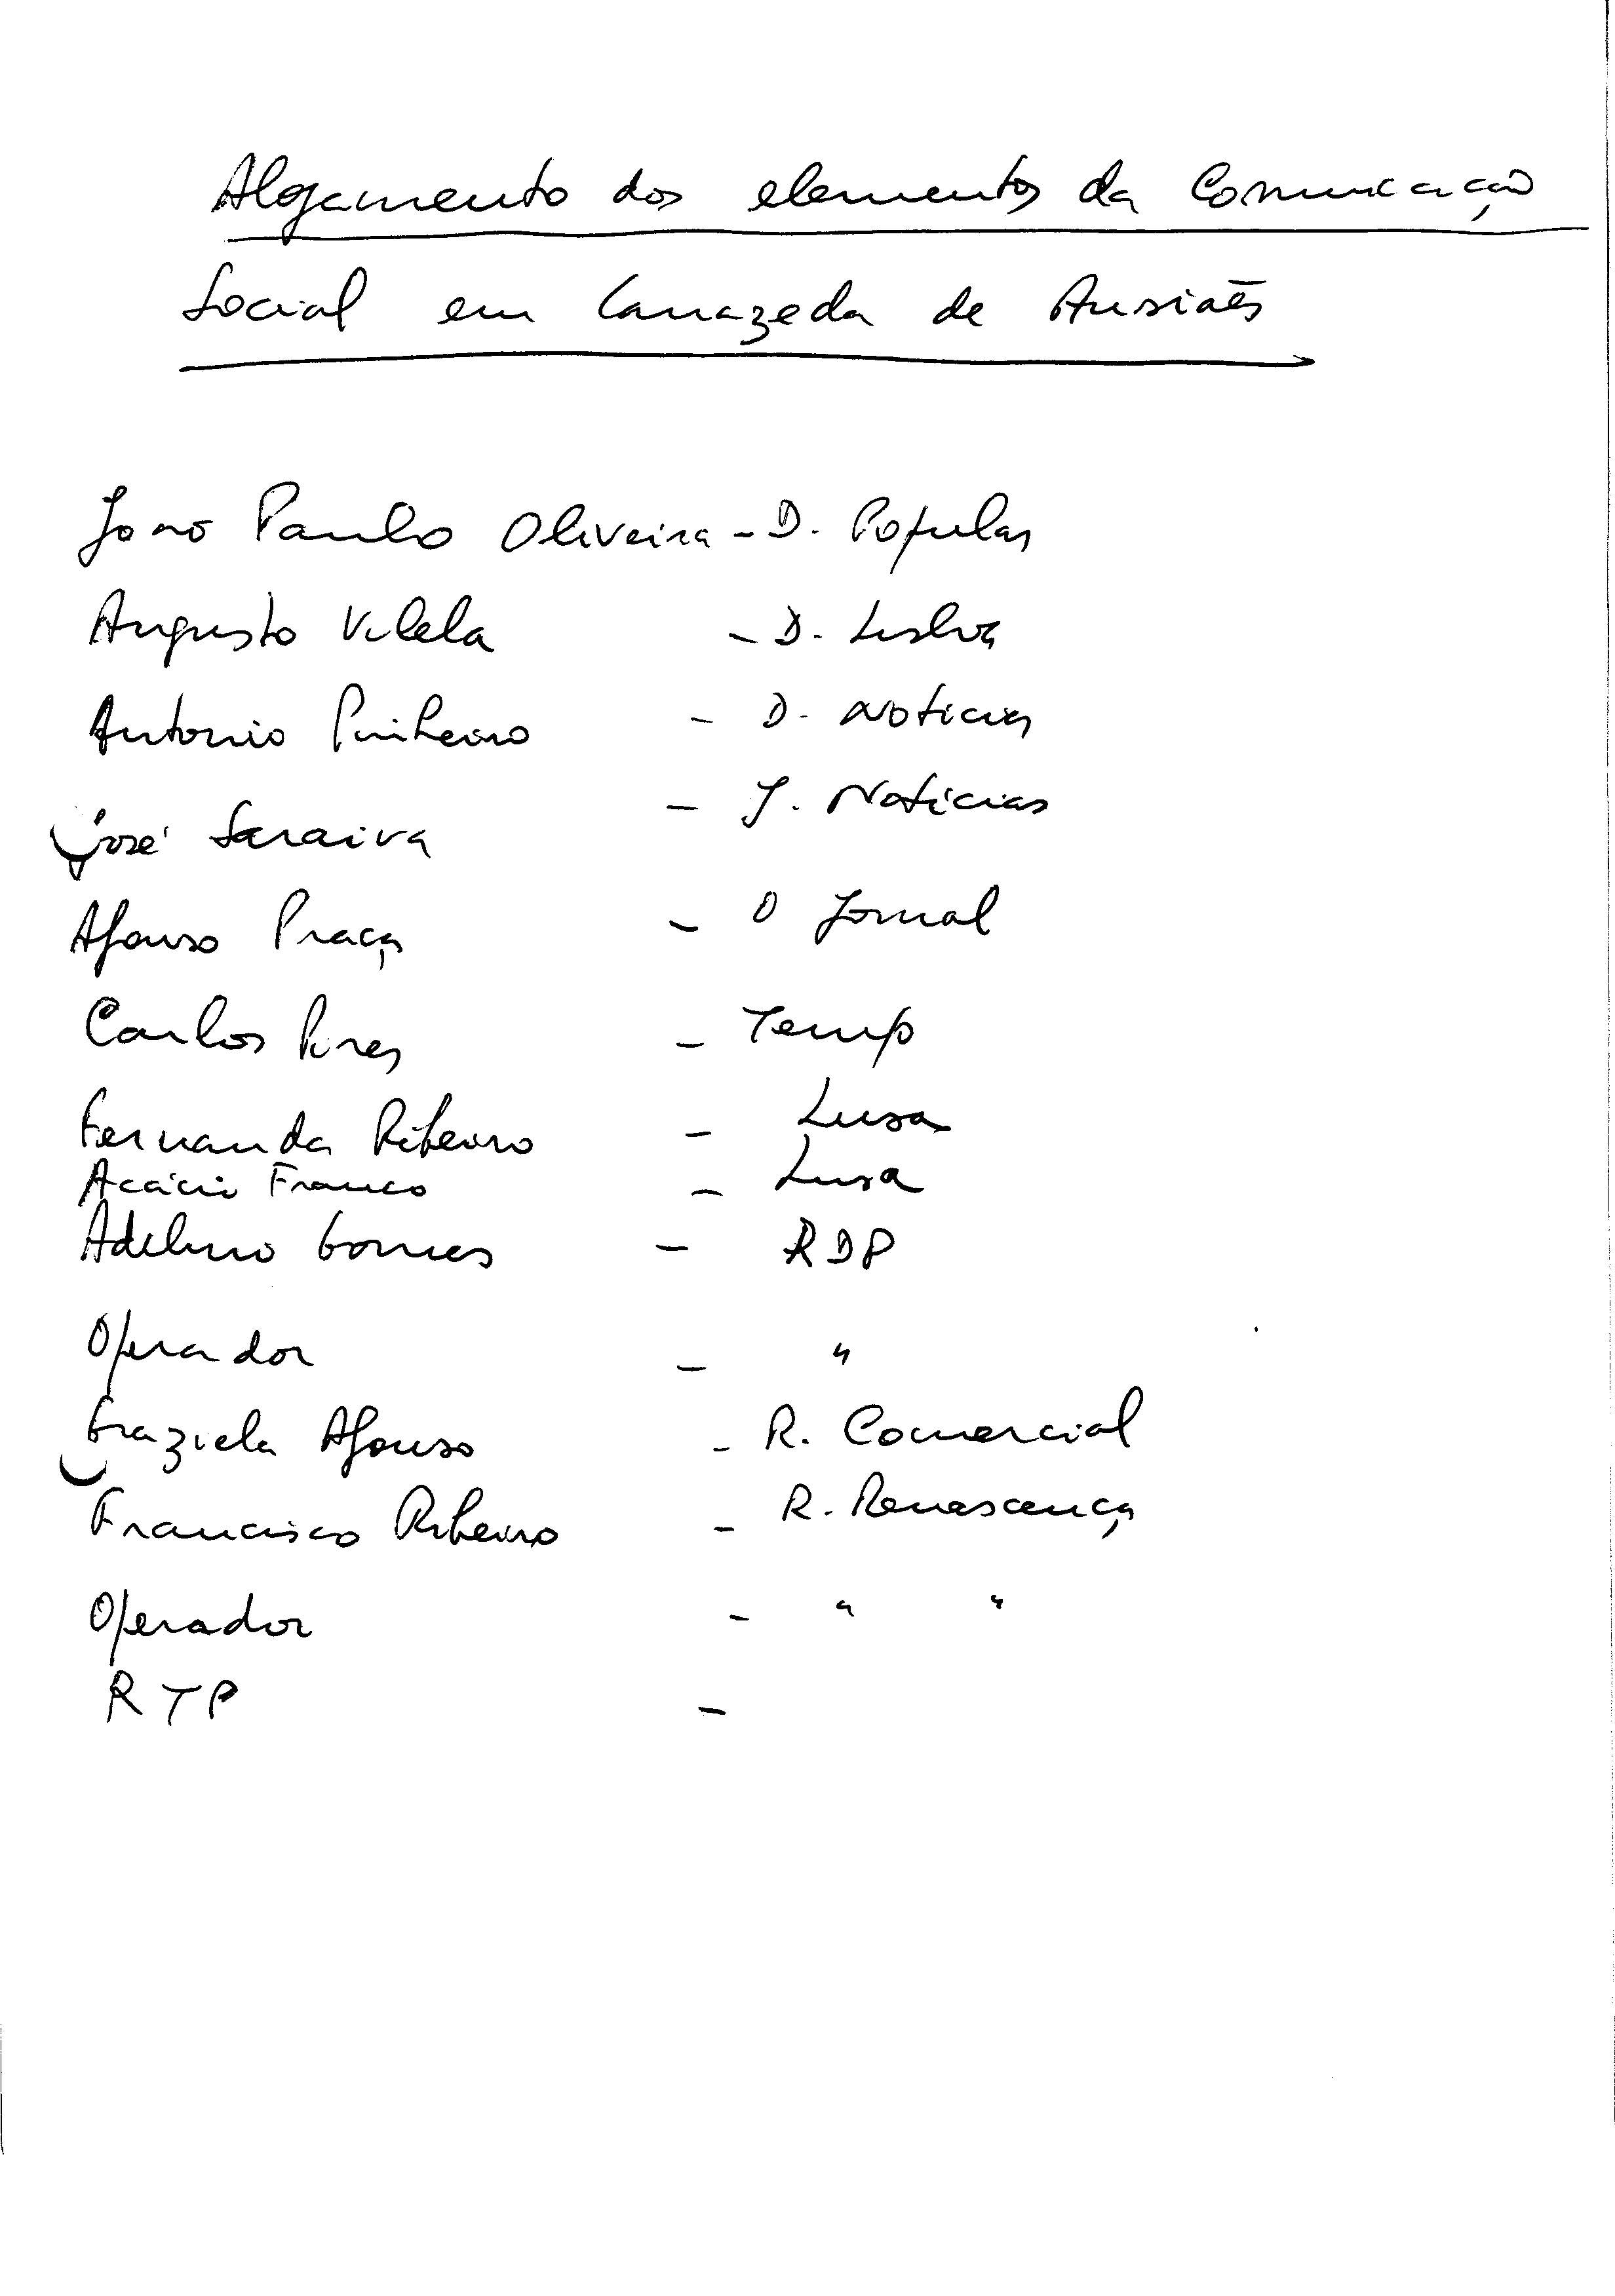 Alojamento dos elementos da Comunicação
Social em Carrazeda de Ansiães
João Paulo Oliveira - D. Popular
Augusto Vilela - D. Lisboa
António Pinheiro - D. Notícias
José Saraiva - J. Notícias
Afonso Praça - O Jornal
Carlos Pires - Tempo
Fernanda Ribeiro - Lusa
Acácio Franco - Lusa
Adelino Gomes - RDP
Operador - "
Graziela Afonso - R. Comercial
Francisco Ribeiro - R. Renascença
Operador - " "
RTP -